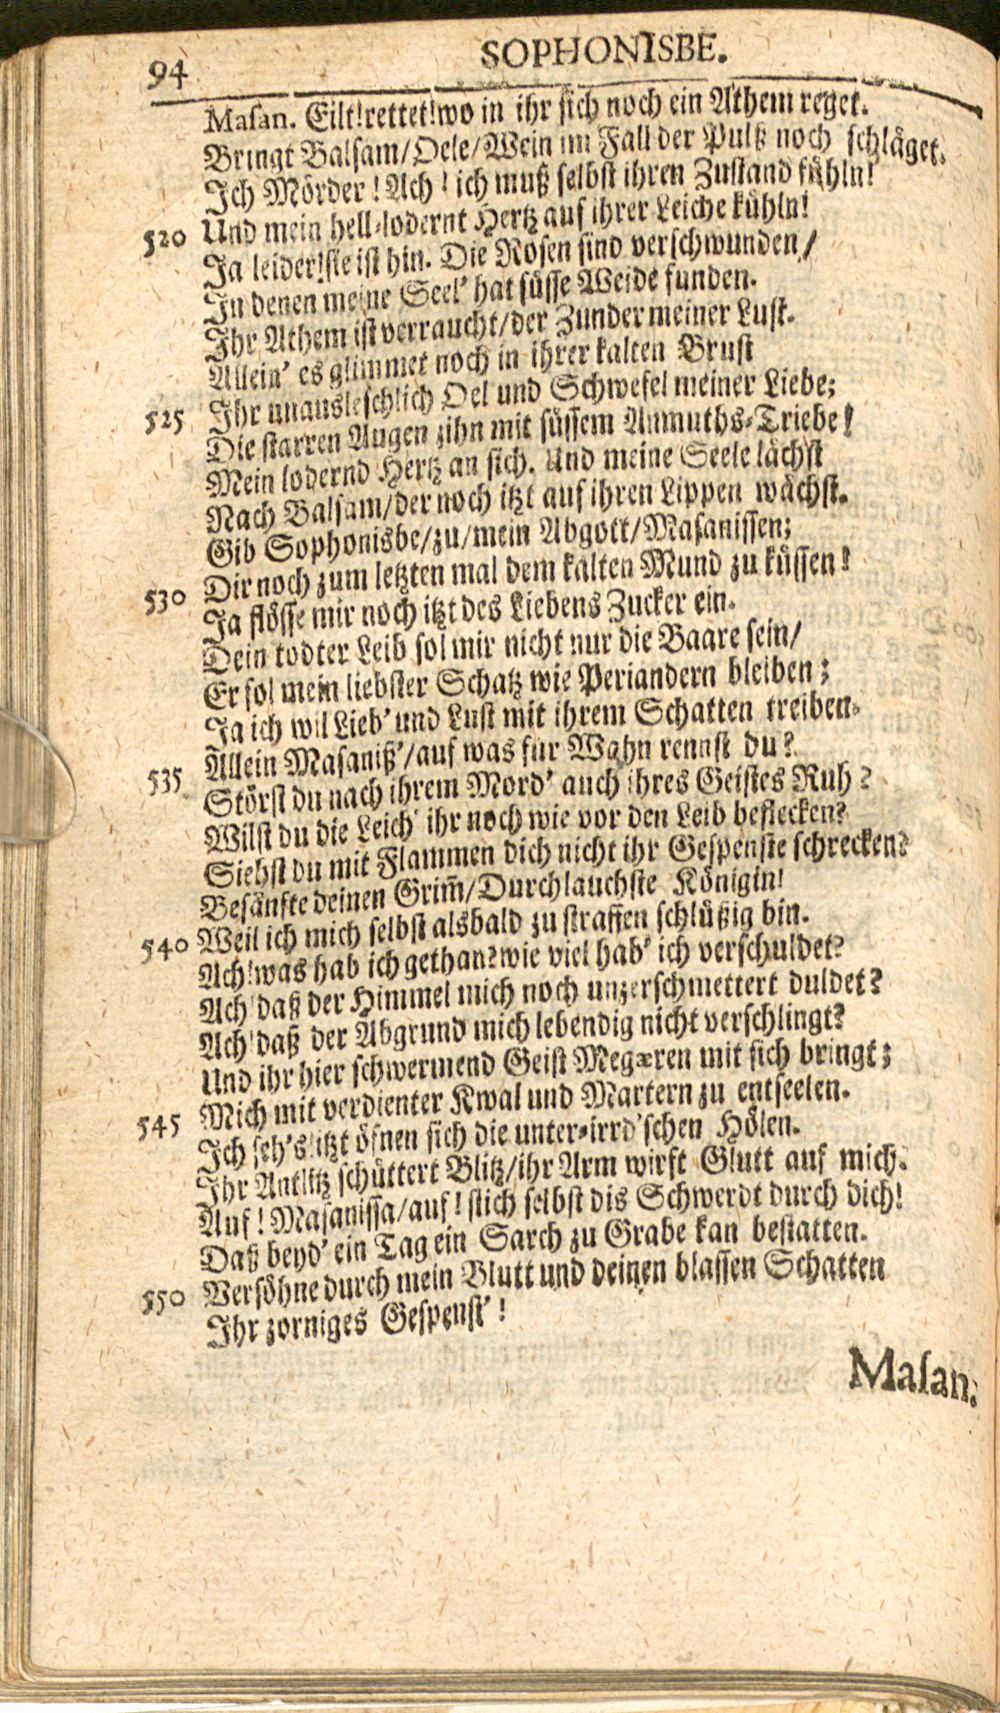 94 SOPHONISBE.
Masan. Eilt! rettet! wo in ihr sich noch ein Athem reget.
Bringt Balsam/Oele/Wein im Fall der Pulß noch schläget.
Ich Mörder! Ach! ich muß selbst ihren Zustand fühln!
520 Und mein hell-lodernt Hertz auf ihrer Leiche kühln!
Ja leider! sie ist hin. Die Rosen sind verschwunden/
In denen meine Seel' hat süsse Weide funden.
Ihr Athem ist verraucht/der Zunder meiner Lust.
Allein' es glimmet noch in ihrer kalten Brust
525 Ihr unausleschlich Oel und Schwefel meiner Liebe;
Die starren Augen zihn mit süssem Anmuths-Triebe!
Mein lodernd Hertz an sich. Und meine Seele lächst
Nach Balsam/der noch itzt auf ihren Lippen wächst.
Gib Sophonisbe/zu/mein Abgott/Masanissen;
530 Dir noch zum letzten mal dem kalten Mund zu küssen!
Ja flösse mir noch itzt des Liebens Zucker ein.
Dein todter Leib sol mir nicht nur die Baare sein/
Er sol mein liebster Schatz wie Periandern bleiben;
Ja ich wil Lieb' und Lust mit ihrem Schatten treiben.
535 Allein Masaniß'/auf was für Wahn rennst du?
Störst du nach ihrem Mord' auch ihres Geistes Ruh?
Wilst du die Leich' ihr noch wie vor den Leib beflecken?
Siehst du mit Flammen dich nicht ihr Gespenste schrecken?
Besänfte deinen Grim̃/Durchlauchste Königin!
540 Weil ich mich selbst alsbald zu straffen schlüßig bin.
Ach! was hab ich gethan? wie viel hab' ich verschuldet?
Ach! daß der Himmel mich noch unzerschmettert duldet?
Ach! daß der Abgrund mich lebendig nicht verschlingt?
Und ihr hier schwermend Geist Megæren mit sich bringt;
545 Mich mit verdienter Kwal und Martern zu entseelen.
Ich seh's itzt öfnen sich die unter-irrd'schen Hölen.
Ihr Antlitz schüttert Blitz/ihr Arm wirft Glutt auf mich.
Auf! Masanissa/auf! stich selbst dis Schwerdt durch dich!
Daß beyd' ein Tag ein Sarch zu Grabe kan bestatten.
550 Versöhne durch mein Blutt und deinen blassen Schatten
Ihr zorniges Gespenst'!
Masan.